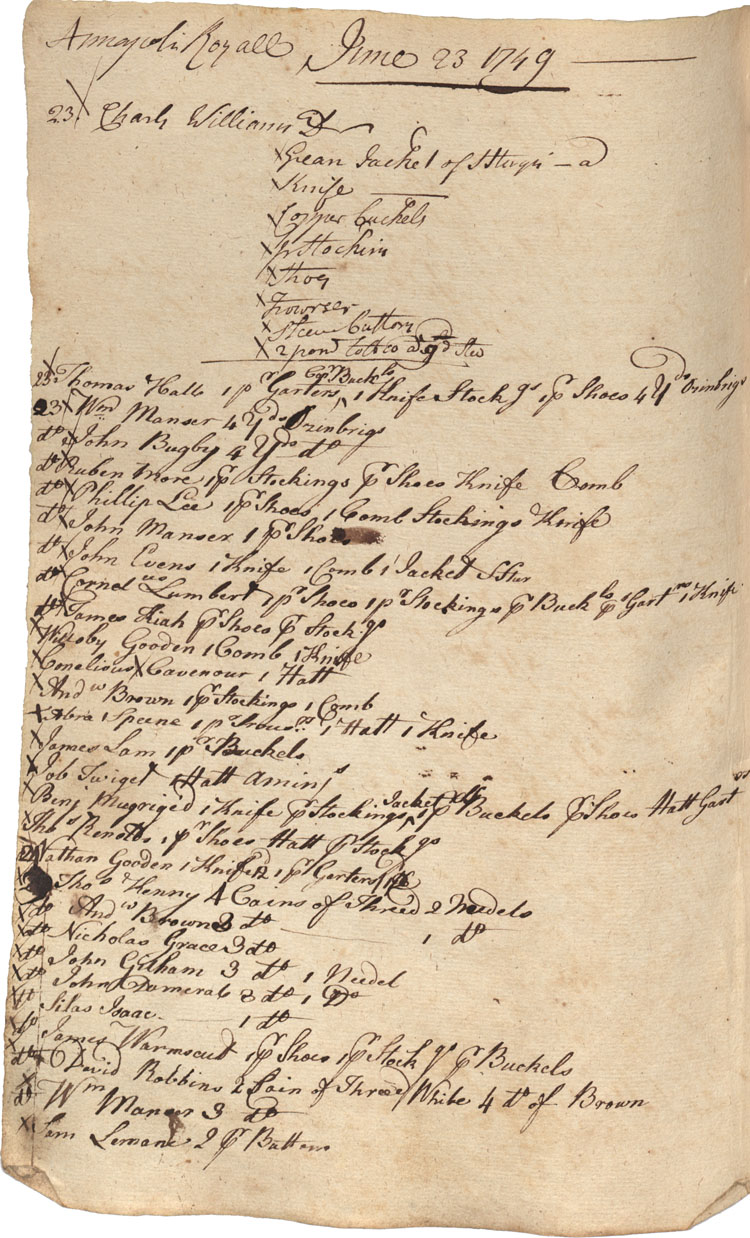 Annapolis Royall June 23 1749
23 Charls Williams Dr
Grean Jacket of
Knife
Copper Buckels
pr Stockins
Shoes
Trowser
Sleeve Buttons
2 pond tobco a 9d
23 Thomas Hall 1 pr Garters, Copr Buckls 1 Knife Stockgs 1 pr Shoes 4 Yds Ozinbrigs
23 Wm Manser 4 Yds Ozinbrigs
do John Bugby 4 Yds do
do Ruben More 1 pr Stockings pr Shoes Knife Comb
do Phillip Lee 1 pr Shoes 1 Comb Stockings Knife
do John Manser 1 pr Shoes
do John Evens 1 Knife 1 Comb 1 Jacket
do Cornelus Lambert 1 pr Shoes 1 pr Stockings pr Buckls pr Garters 1 Knife
do James Kiah pr Shoes pr Stockgs
Willoby Gooden 1 Comb 1 Knife
Cornelious Cavenour 1 Hatt
Andw Brown 1 pr Stockings 1 Comb
Abra Speene 1 pr Trousrs 1 Hatt 1 Knife
James Lam 1 pr Buckels
Job 1 Hatt
Benj Mugriged 1 Knife pr Stockings, Jacket 1 pr Buckels pr Shoes Hatt Garts
Thos Renolls 1 pr Shoes Hatt pr Stockgs
Nathan Gooden 1 Knife 1 pr Garters
Thos Henny 4 Cains of Thred 2 Nedels
do Andw Brown 3 do 1 do
do Nicholas Grace 3 do
do John Gilham 3 do 1 Nedel
do John Dameral 3 do 1 Do
Silas Isaac 1 do
do James Warmscut 1 pr Shoes 1 pr Stockgs pr Buckels
do David Robbins 2 Cain of Threed White 4 do of Brown
do Wm Manser 3 do
Sam Lemane 2 pr Buttons